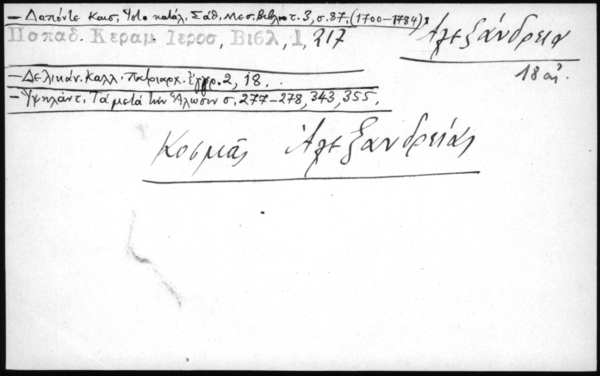 – Δαπόντε Καισ. Ἱστ. κατάλ. Σάθ. Μεσ. Βιβλιοθ. τ. 3, σ. 87. (1700–1784)
Παπαδ. Κεραμ. Ιεροσ, Βιβλ, 1, 217
Ἀλεξάνδρεια
18 αἰ.
– Δελικάν. Καλλ. Πατριαρχ. Ἔγγρ. 2, 18.
– Ὑψηλάντ. Τὰ μετὰ τὴν Ἅλωσιν σ. 277–278, 343, 355.
Κοσμᾶς Ἀλεξανδρείας